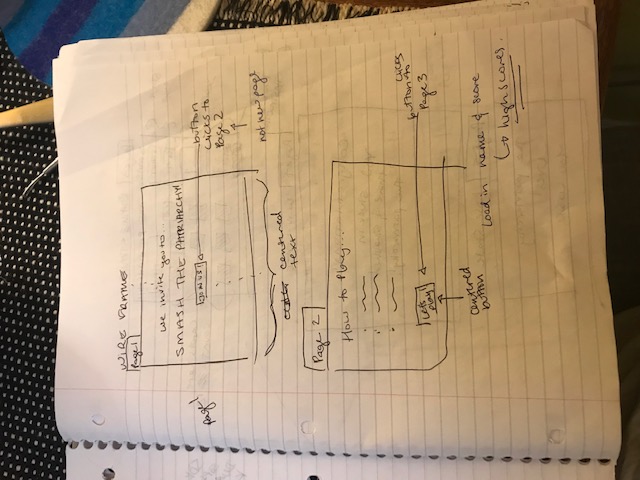 WIRE FRAME
Page 1
we invite you to...
SMASH THE PATRIARCHY!
JOIN US!
button
clicks to
Page 2
not new page
page 1
centered
text
Page 2
How to Play...
Lets
play!
clicks
button to
Page 3
centered
button
Load in name & score
↳ high scores.